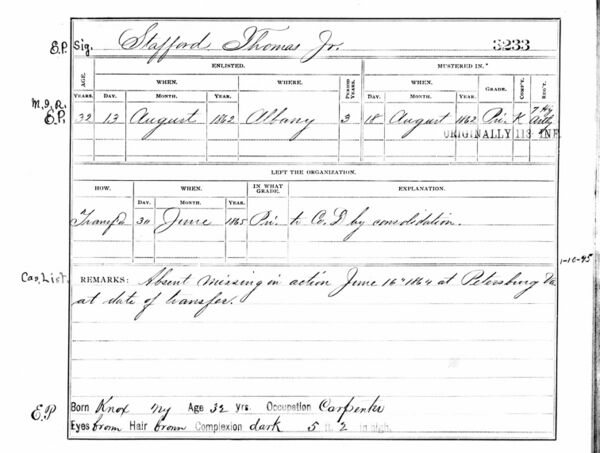 E.P. Sig. Stafford, Thomas Jr. 3233
ENLISTED. MUSTERED IN.*
AGE. WHEN. WHERE. PERIOD WHEN. GRADE. COMP'Y. REG'T.
YEARS. DAY. MONTH. YEAR. YEARS. DAY. MONTH. YEAR.
M.I.R.
E.P. 32 13 August 1862 Albany 3 18 August 1862 Pri. K 7 Hy Arty
ORIGINALLY 113 INF.
LEFT THE ORGANIZATION.
HOW. WHEN. IN WHAT GRADE. EXPLANATION.
DAY. MONTH. YEAR.
Transf'd 30 June 1865 Pri. to Co. by consolidation.
1-10-45
Cas. List. REMARKS: Absent missing in action June 16" 1864 at Petersburg Va
at date of transfer.
E.P Born Knox Ny Age 32 yrs. Occupation Carpenter
Eyes brown Hair brown Complexion dark 5 ft. 2 in high.